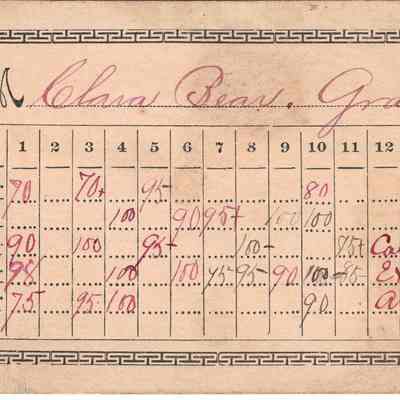 Clara Bear. Gra
1 2 3 4 5 6 7 8 9 10 11 12
90 70+ 95 80
100 90 95+ 100 100
90 100 95+ 100- 85+ Ca
98 100 100 95 95 90 100- 85 Ex
75 95 100 90 a